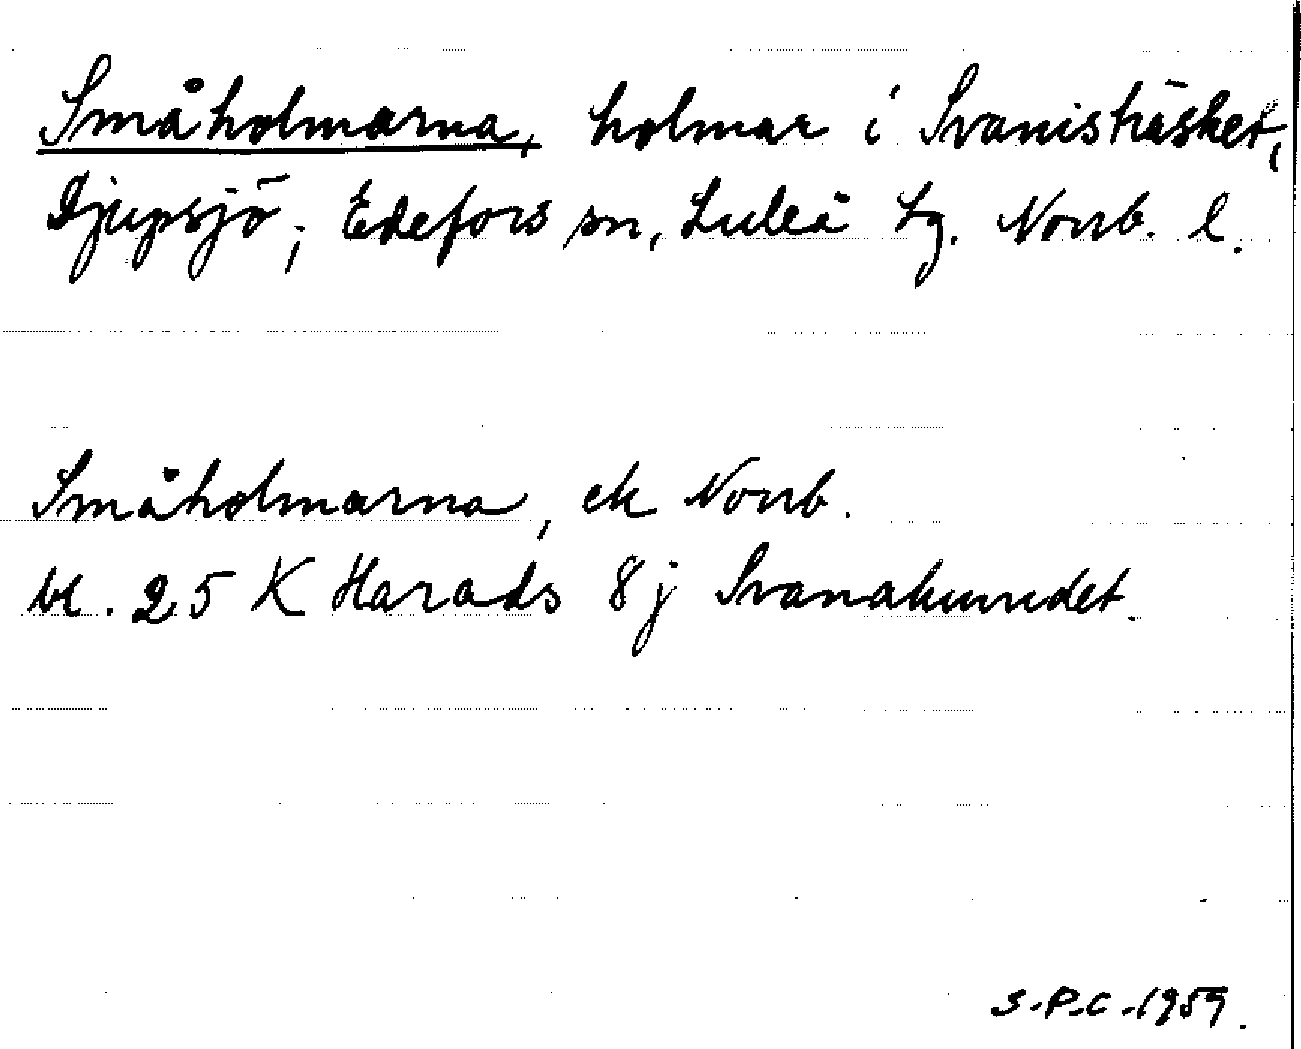 Småholmarna, holmar i Svanisträsket,
Djupsjö; Edefors sn, Luleå lg. Norrb. l.
Småholmarna, ek Norrb.
bl. 25 K Harads 8j Svanakunndet.
S.P.C. 1959.